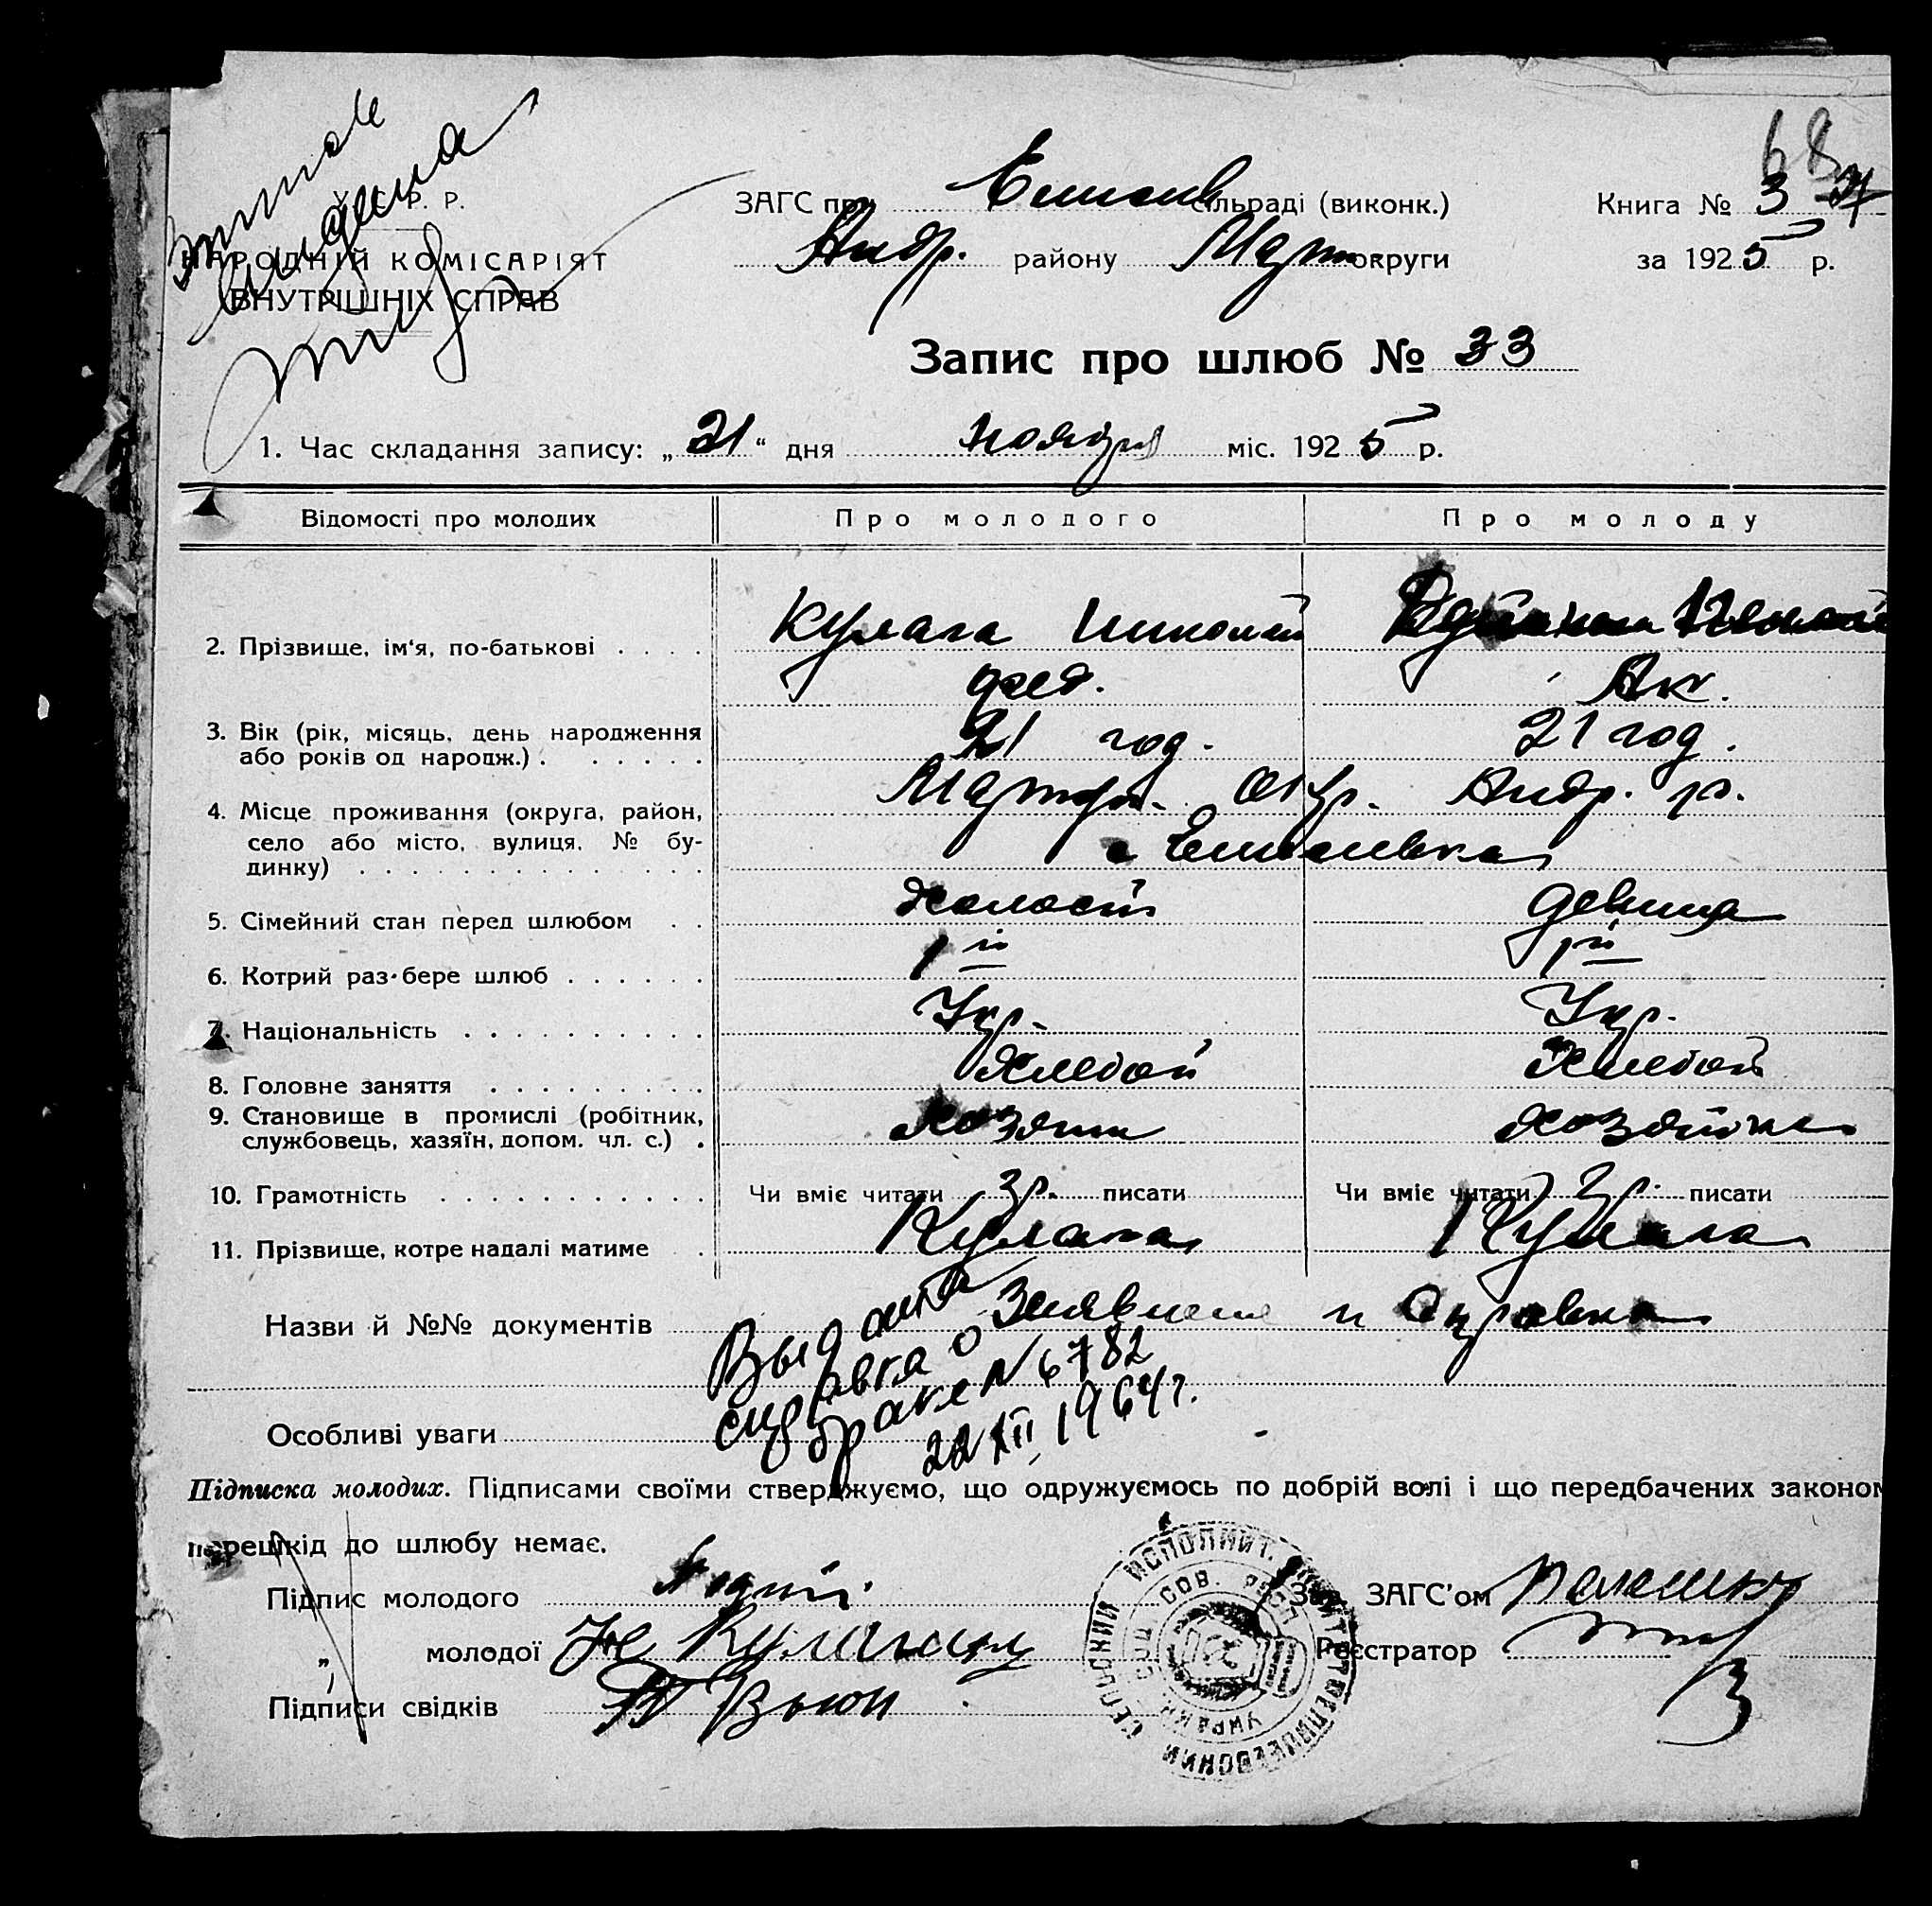 У. С. Р. Р.
НАРОДНІЙ КОМІСАРІЯТ
ВНУТРІШНІХ СПРАВ
ЗАГС при сільраді (виконк.)
Андр. району округи
Книга № 3
за 1925 р.
68
Запис про шлюб № 33
1. Час складання запису: „21“ дня ноября міс. 1925 р.
Відомості про молодих Про молодого Про молоду
2. Прізвище, ім'я, по-батькові Кулага Николай
фед. Ак.
3. Вік (рік, місяць, день народження
або років од народж.) 21 год. 21 год.
4. Місце проживання (округа, район, Окр. Андр. р.
село або місто, вулиця, № бу-
динку)
5. Сімейний стан перед шлюбом холост девица
6. Котрий раз бере шлюб 1й 1й
7. Національність Укр. Укр.
8. Головне заняття Хлебоп Хлебоп
9. Становище в промислі (робітник,
службовець, хазяїн, допом. чл. с.) хозяин хозяйка
10. Грамотність Чи вміє читати гр. писати Чи вміє читати гр. писати
11. Прізвище, котре надалі матиме Кулага Кулага
Назви й №№ документів Заявление и Справка
Выдана
справка о
браке N 6782
22 XII 1964 г.
Особливі уваги
Підписка молодих. Підписами своїми стверджуємо, що одружуємось по добрій волі і що передбачених законом
перешкід до шлюбу немає.
Підпис молодого
„ молодої
Підписи свідків Вьюн
Зав. ЗАГС'ом
Реєстратор
СЕЛЬСКИЙ ИСПОЛНИТ. КОМИТЕТ
УКРАИН. СОЦ. СОВ. РЕСП.